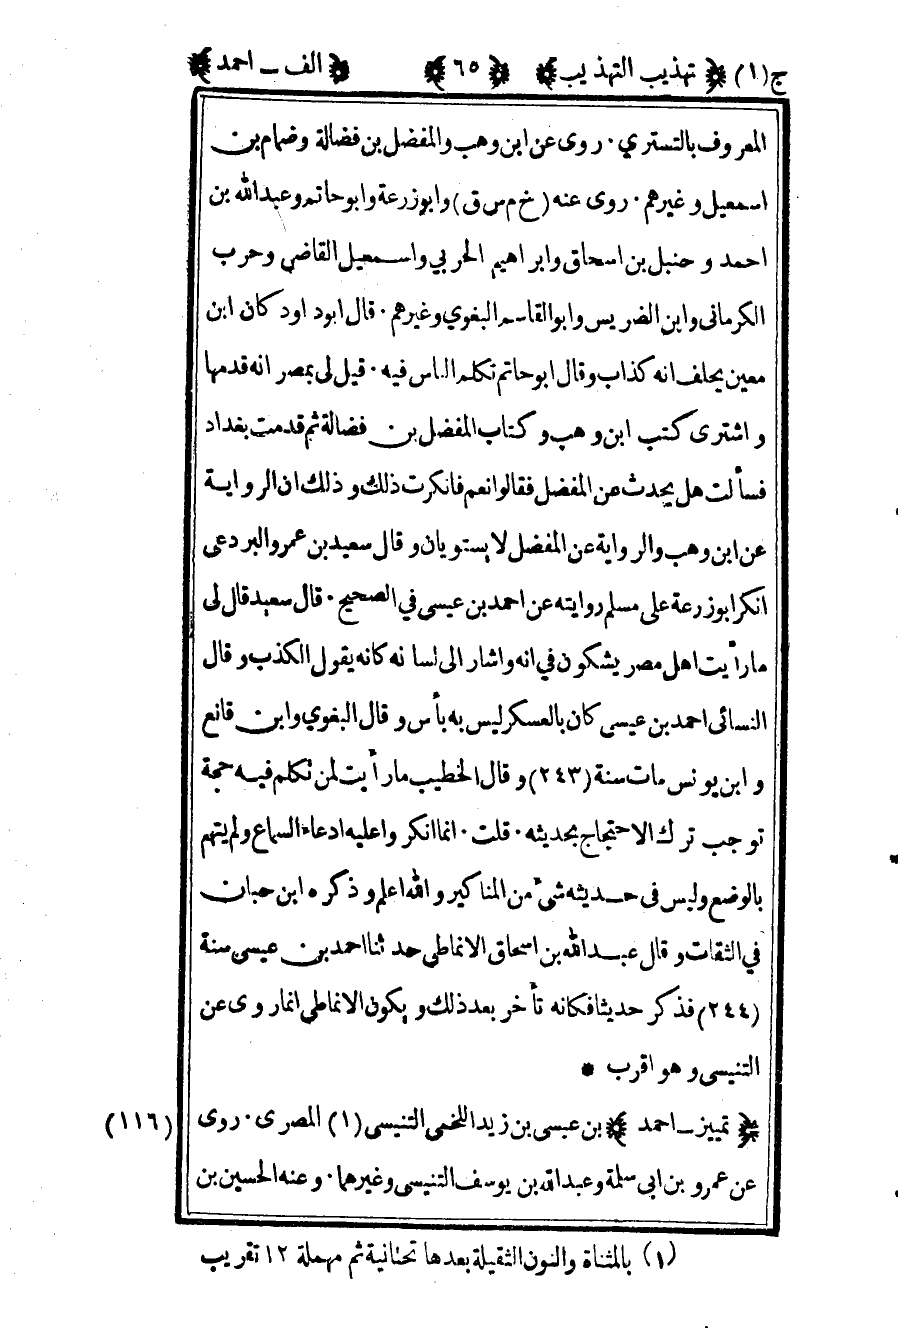 ج(١) ﴿ تهذيب التهذيب ﴾ ﴿ ٦٥ ﴾ ﴿ الف ــ احمد ﴾
المعروف بالتستري ٠ روى عن ابن وهب والمفضل بن فضالة وضمام بن
اسمعيل وغيرهم ٠ روى عنه (خ م س ق) وابوزرعة وابوحاتم وعبدالله بن
احمد و حنبل بن اسحاق وابراهيم الحربي واسمعيل القاضي وحرب
الكرمانى وابن الضريس وابوالقاسم البغوي وغيرهم ٠ قال ابوداود كان ابن
معين يحلف انه كذاب وقال ابوحاتم تكلم الناس فيه ٠ قيل لى بمصر انه قدمها
و اشترى كتب ابن وهب و كتاب المفضل بن فضالة ثم قدمت بغداد
فسألت هل يحدث عن المفضل فقالوا نعم فانكرت ذلك و ذلك ان الرواية
عن ابن وهب والرواية عن المفضل لا يستويان و قال سعيد بن عمرو البردعى
انكر ابوزرعة على مسلم روايته عن احمد بن عيسى في الصحيح ٠ قال سعيد قال لى
ما رأيت اهل مصر يشكون في انه و اشار الى لسانه كانه يقول الكذب و قال
النسائى احمد بن عيسى كان بالعسكر ليس به بأس و قال البغوي وابن قانع
و ابن يونس مات سنة (٢٤٣) و قال الخطيب ما رأيت لمن تكلم فيه حجة
توجب ترك الاحتجاج بحديثه ٠ قلت ٠ انما انكروا عليه ادعاء السماع ولم يتهم
بالوضع وليس فى حديثه شىء من المناكير و الله اعلم و ذكره ابن حبان
في الثقات و قال عبدالله بن اسحاق الانماطى حدثنا احمد بن عيسى سنة
(٢٤٤) فذكر حديثا فكانه تأخر بعد ذلك و يكون الانماطى انما روى عن
التنيسى و هو اقرب *
﴿ تمييز ــ احمد ﴾ بن عيسى بن زيد اللخمى التنيسى (١) المصرى ٠ روى (١١٦)
عن عمرو بن ابى سلمة وعبدالله بن يوسف التنيسى وغيرهما ٠ و عنه الحسين بن
(١) بالمثناة والنون الثقيلة بعدها تحتانية ثم مهملة ١٢ تقريب